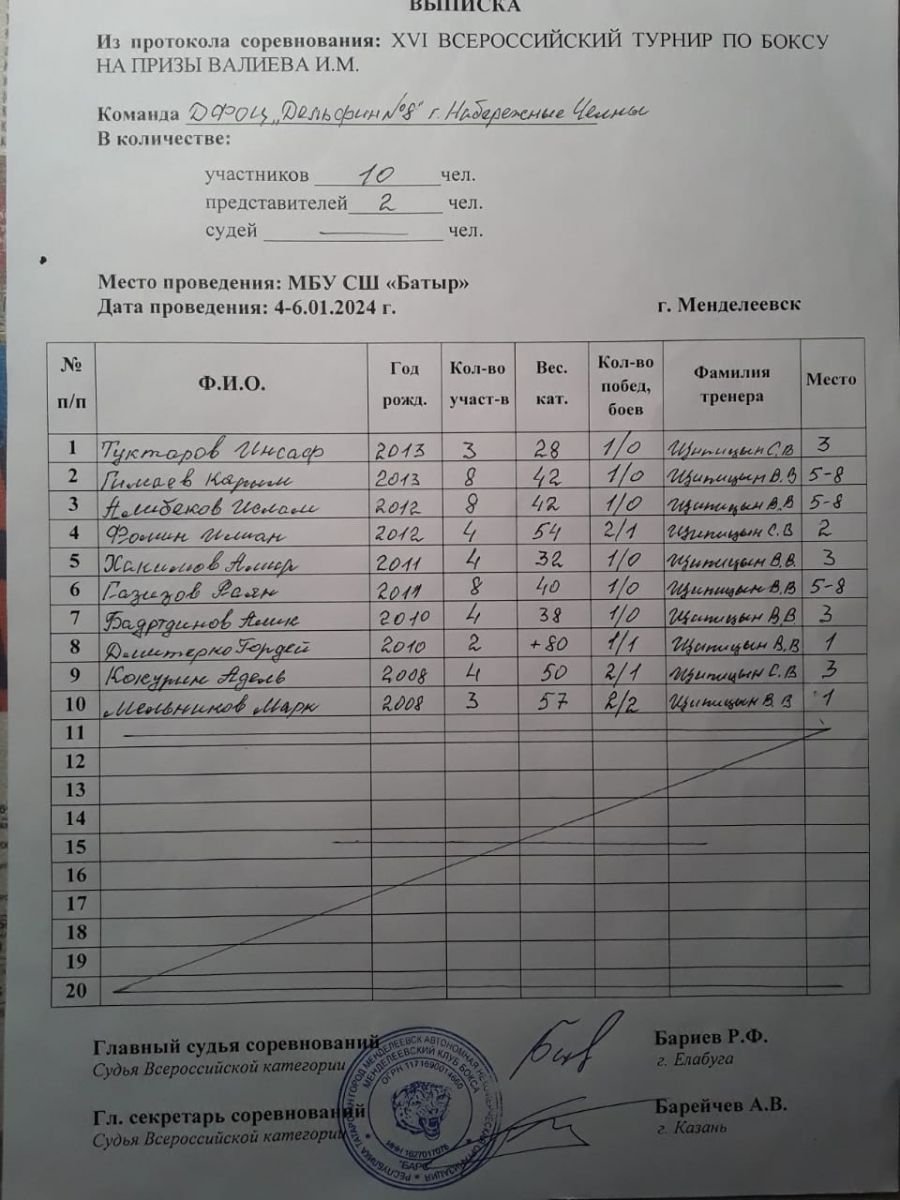 ВЫПИСКА
Из протокола соревнования: XVI ВСЕРОССИЙСКИЙ ТУРНИР ПО БОКСУ
НА ПРИЗЫ ВАЛИЕВА И.М.
Команда ДФОЦ „Дельфин №8" г. Набережные Челны
В количестве:
участников 10 чел.
представителей 2 чел.
судей — чел.
Место проведения: МБУ СШ «Батыр»
Дата проведения: 4-6.01.2024 г. г. Менделеевск
№ п/п Ф.И.О. Год рожд. Кол-во участ-в Вес. кат. Кол-во побед, боев Фамилия тренера Место
1 Туктаров Инсаф 2013 3 28 1/0 Щипицын С.В 3
2 Гимаев Карим 2013 8 42 1/0 Щипицын В.В 5-8
3 Алибеков Ислам 2012 8 42 1/0 Щипицын В.В 5-8
4 Фомин Илиан 2012 4 54 2/1 Щипицын С.В 2
5 Хакимов Амир 2011 4 32 1/0 Щипицын В.В. 3
6 Газизов Раян 2011 8 40 1/0 Щипицын В.В 5-8
7 Бадртдинов Алик 2010 4 38 1/0 Щипицын В.В 3
8 Дмитерко Гордей 2010 2 +80 1/1 Щипицын В.В 1
9 Кокурин Адель 2008 4 50 2/1 Щипицын С.В 3
10 Мельников Марк 2008 3 57 2/2 Щипицын В.В 1
11
12
13
14
15
16
17
18
19
20
Главный судья соревнований Бариев Р.Ф.
Судья Всероссийской категории г. Елабуга
Гл. секретарь соревнований Барейчев А.В.
Судья Всероссийской категории г. Казань
РЕСПУБЛИКА ТАТАРСТАН ГОРОД МЕНДЕЛЕЕВСК АВТОНОМНАЯ НЕКОММЕРЧЕСКАЯ ОРГАНИЗАЦИЯ
МЕНДЕЛЕЕВСКИЙ КЛУБ БОКСА
ОГРН 1171690014660
ИНН 1627017076
"БАРС"